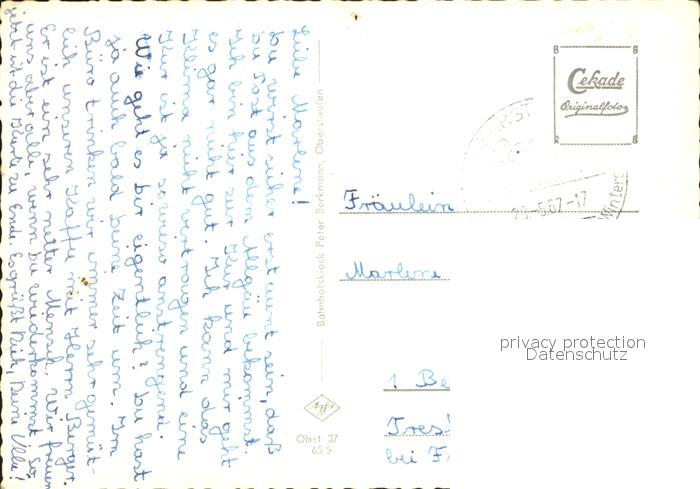 Liebe Marlene!
Du wirst sicher erstaunt sein, daß
Du Post aus dem Allgäu bekommst.
Ich bin hier zur Kur und mir geht
es gar nicht gut. Ich kann das
Klima nicht vertragen und eine
Kur ist ja sowieso anstrengend.
Wie geht es Dir eigentlich? Du hast
ja auch bald Deine Zeit um. Im
Büro trinken wir immer sehr gemüt-
lich unseren Kaffee mit Herrn Berger.
Er ist ein sehr netter Mensch. Wir freuen
uns aber alle, wenn Du wiederkommst. So,
jetzt ist die Karte zu Ende. Es grüßt Dich, Deine Ulla!
Bahnhofskiosk Peter Berkmann, Oberstaufen
Agfa
Obst 37
65 S
Cekade
Originalfoto
-5.67-17
Winters
Fräulein
Marlene
1 Be
Tres
bei F
privacy protection
Datenschutz